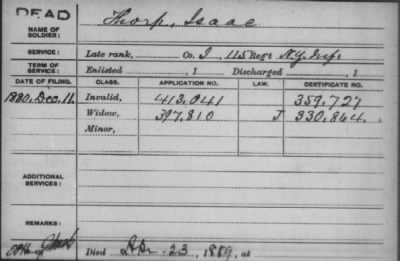 DEAD
NAME OF SOLDIER: Thorp, Isaac
SERVICE: Late rank, Co. I, 115 Regt N.Y. Inf.
TERM OF SERVICE: Enlisted , 1 Discharged , 1
DATE OF FILING. CLASS. APPLICATION NO. LAW. CERTIFICATE NO.
1880, Dec. 11. Invalid, 413,041 359,727
Widow, 397,810 J 330,864.
Minor,
ADDITIONAL SERVICES:
REMARKS:
Died Apr. 23, 1889, at